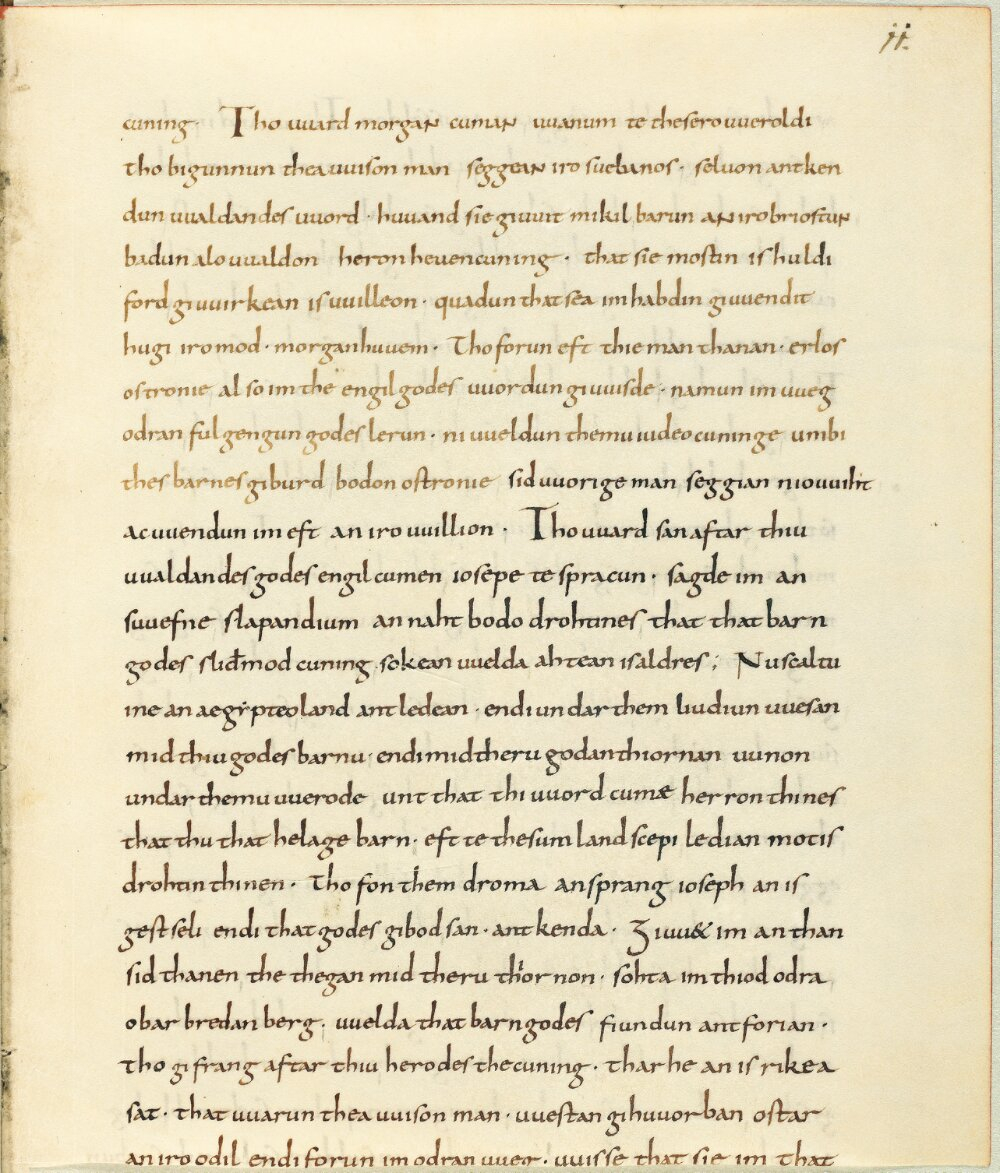 ii.
cuning. Tho uuard morgan cuman uuanum te thesero uueroldi
tho bigunnun thea uuison man seggean iro suebanos· seluon antken
dun uualdandes uuord· huuand sie giuuit mikil barun an iro briostun
badun alouualdon heron hevencuning· that sie mostin is huldi
ford giuuirkean is uuilleon· quadun that sea im habdin giuuendit
hugi iro mod· morgan huuem· Tho forun eft thie man thanan· erlos
ostronie al so im the engil godes uuordun giuuisde· namun im uueg
odran fulgengun godes lerun· ni uueldun themu iudeo cuninge umbi
thes barnes giburd bodon ostronie sid uuorige man seggian niouuiht
ac uuendun im eft an iro uuillion· Tho uuard san aftar thiu
uualdandes godes engil cumen iosepe te spracun· sagde im an
suuefne slapandium an naht bodo drohtines that that barn
godes slidmod cuning sokean uuelda ahtean is aldres; Nu scaltu
ine an aegypteo land antledean· endi undar them liudiun uuesan
mid thiu godes barnu· endi mid theru godan thiornan uunon
undar themu uuerode unt that thi uuord cumæ herron thines
that thu that helage barn· eft te thesum landscepi ledian motis
drohtin thinen· Tho fon them droma ansprang ioseph an is
gestseli endi that godes gibod san· antkenda· Giuu& im an than
sid thanen the thegan mid theru thiornon· sohta im thiod odra
obar bredan berg· uuelda that barn godes fiundun antforian·
tho gifrang aftar thiu herodes the cuning· thar he an is rikea
sat· that uuarun thea uuison man· uuestan gihuuorban ostar
an iro odil endi forun im odran uueg· uuisse that sie im that